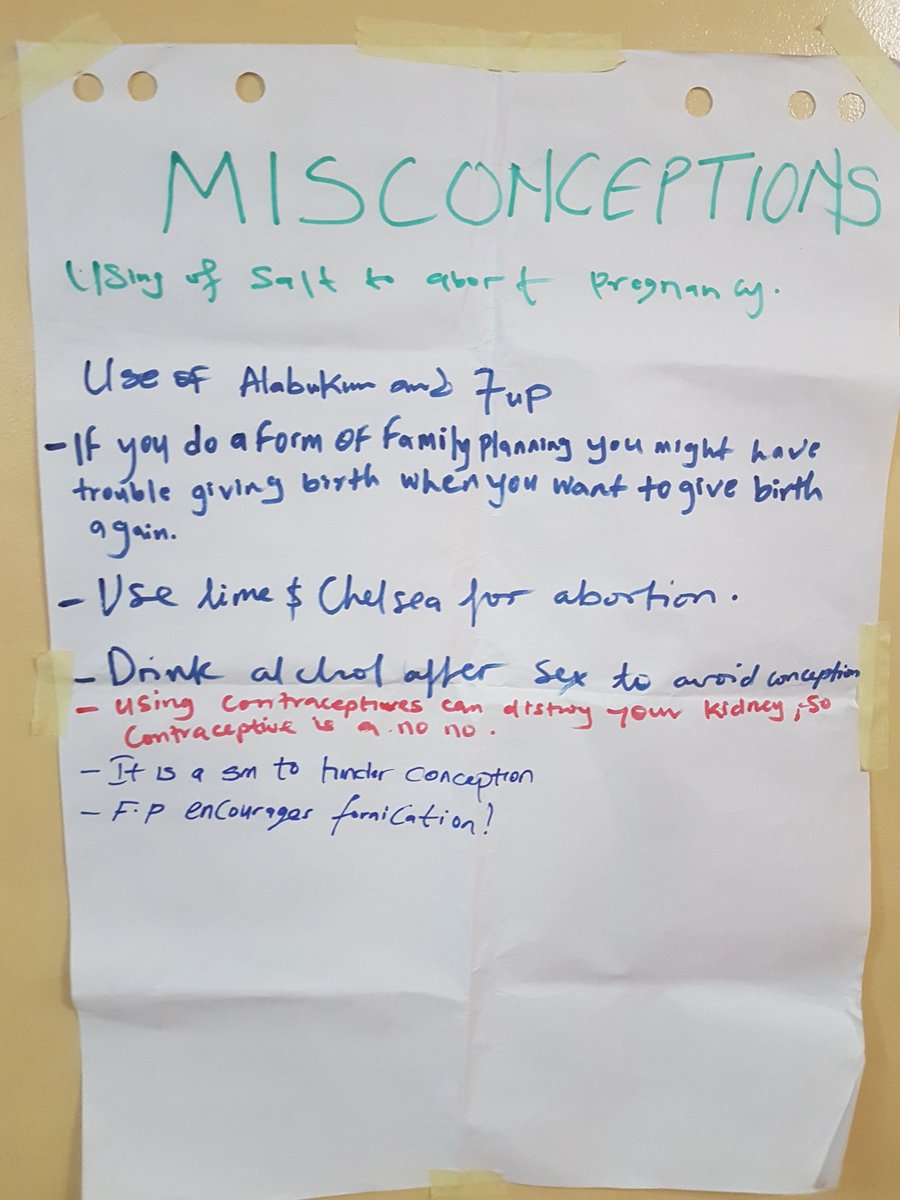 MISCONCEPTIONS
Using of Salt to abort pregnancy.
Use of Alabukun and 7up
- If you do a form of family planning you might have
trouble giving birth when you want to give birth
again.
- Use lime $ Chelsea for abortion.
- Drink alchol after sex to avoid conception
- Using contraceptives can distroy your kidney, so
contraceptive is a no no.
- It is a sin to hinder conception
- F.P encourages fornication!